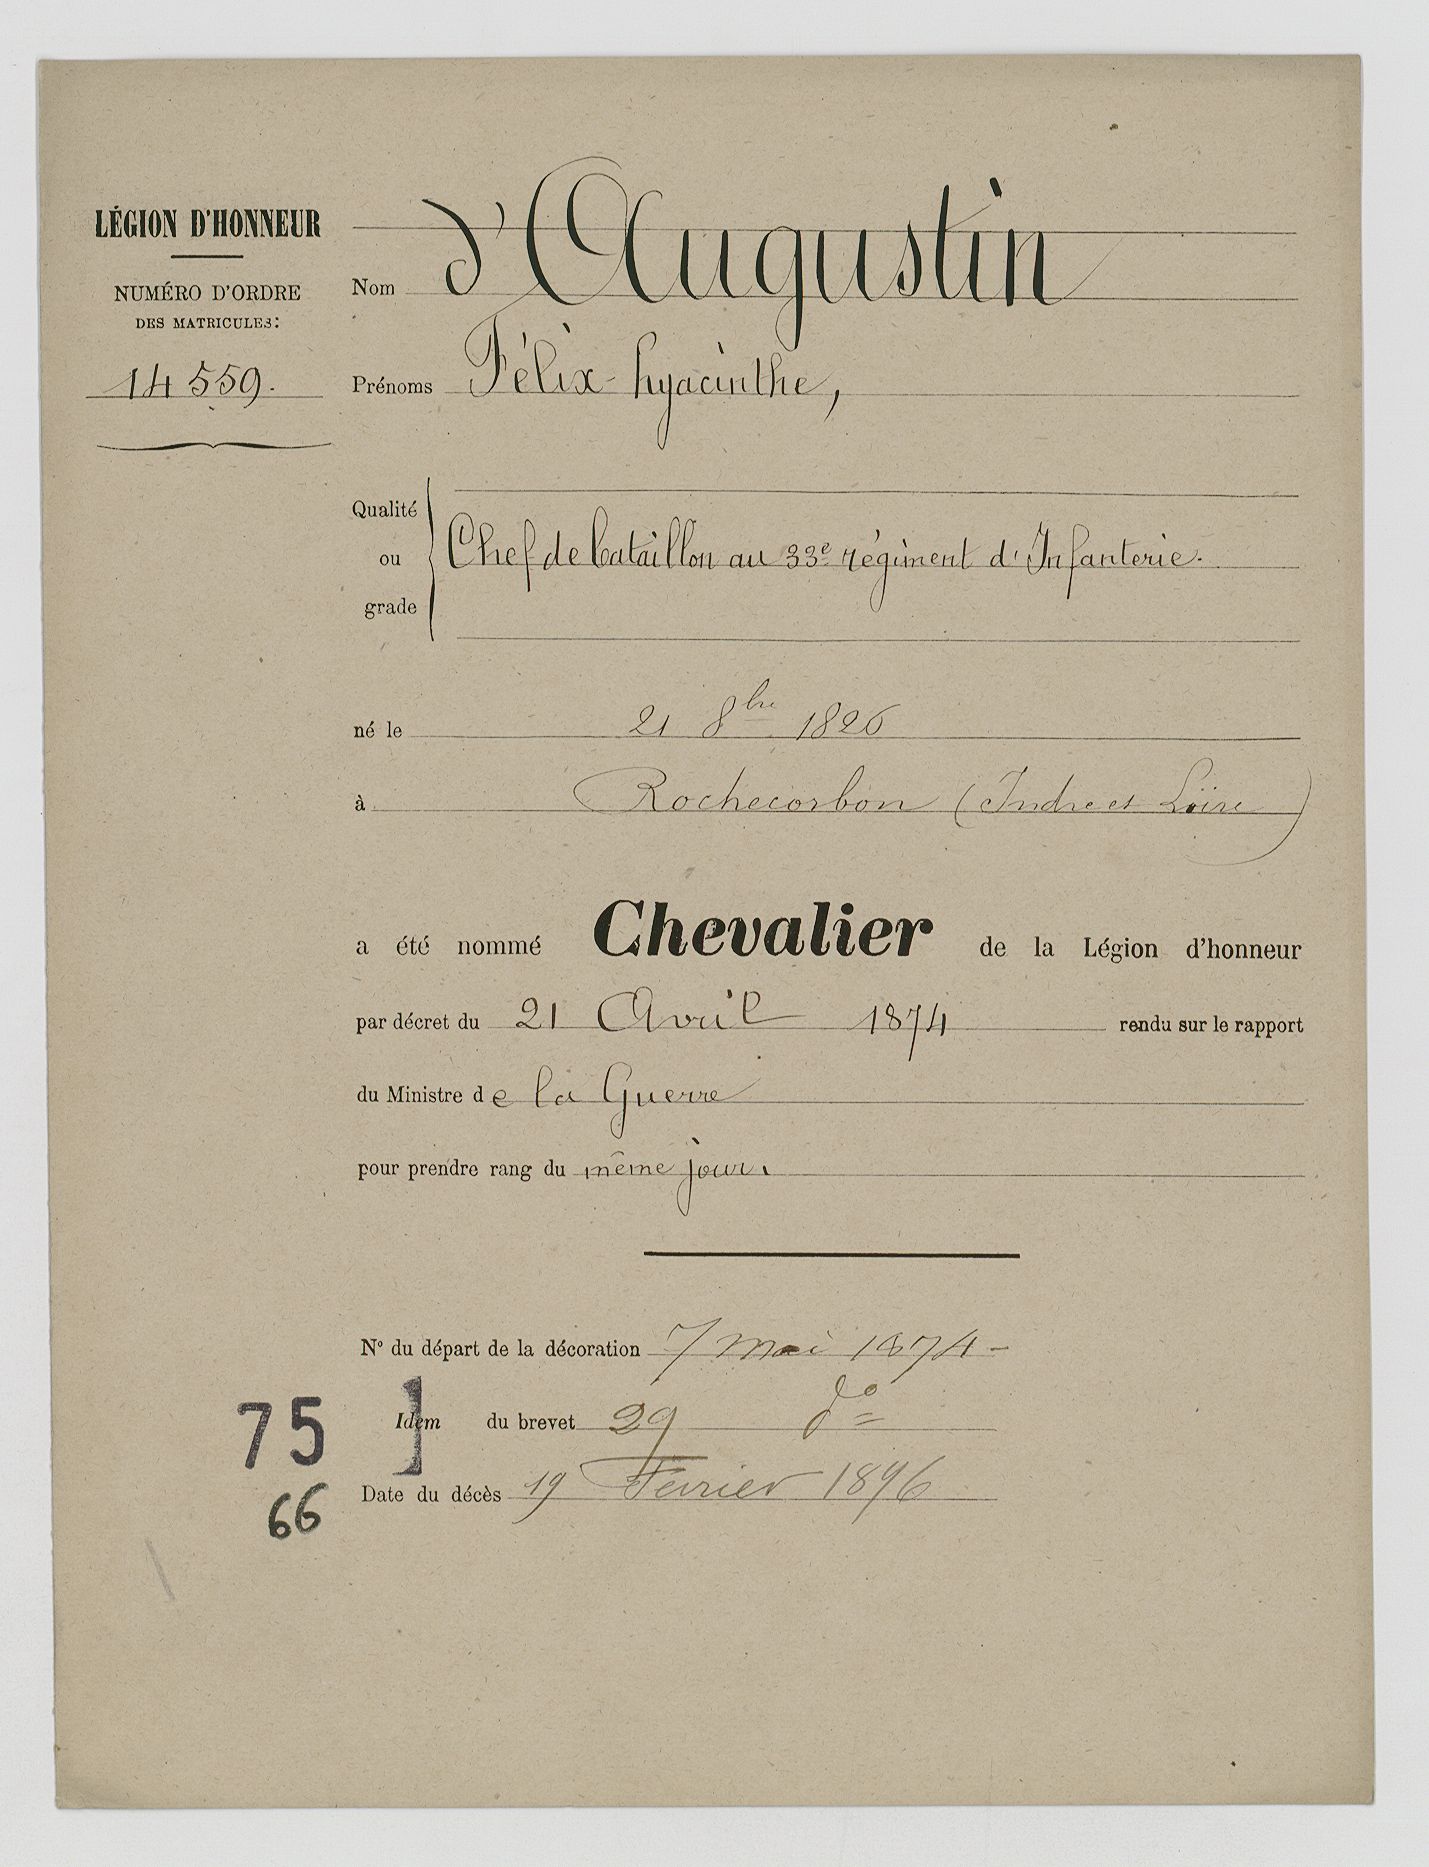 LÉGION D'HONNEUR
NUMÉRO D'ORDRE
DES MATRICULES:
14 559.
Nom d'Augustin
Prénoms Félix-hyacinthe,
Qualité
ou
grade
Chef de bataillon au 33e régiment d'Infanterie.
né le 21 8bre 1826
à Rochecorbon (Indre et Loire)
a été nommé Chevalier de la Légion d'honneur
par décret du 21 Avril 1874 rendu sur le rapport
du Ministre de la Guerre
pour prendre rang du même jour.
N° du départ de la décoration 7 mai 1874 -
Idem du brevet 29 do
Date du décès 19 Fevrier 1896
75 ]
66